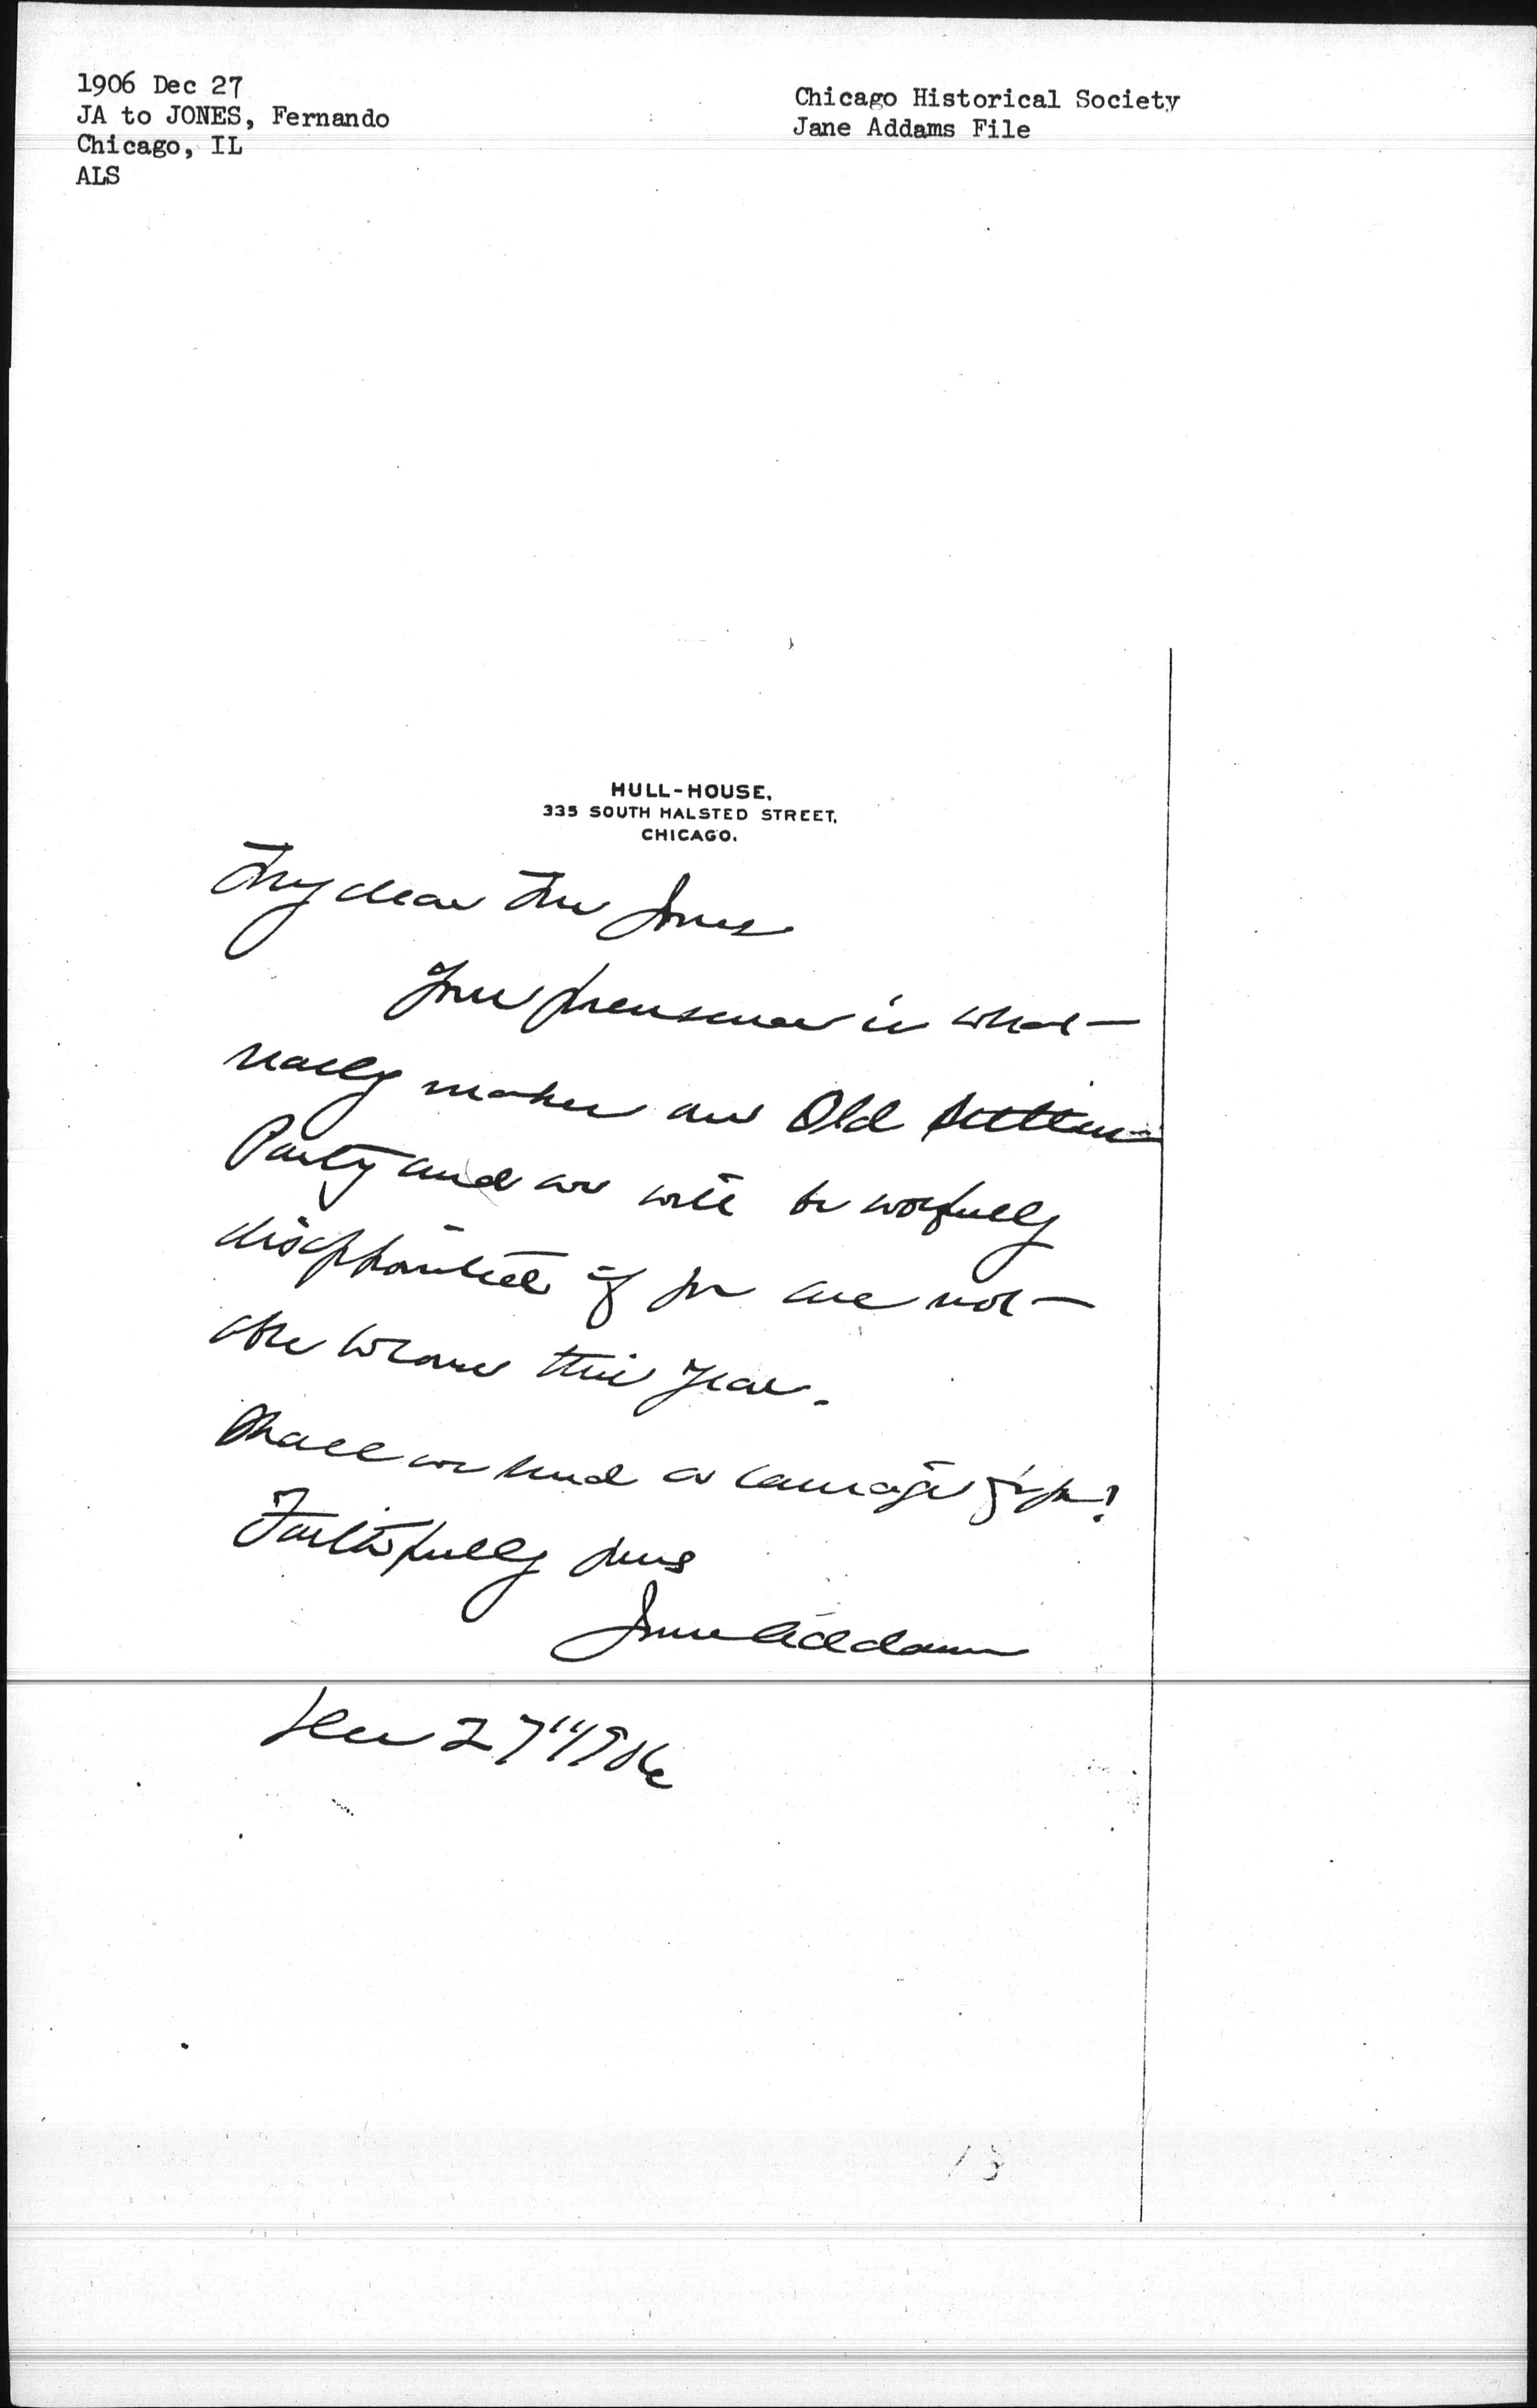 1906 Dec 27
JA to JONES, Fernando
Chicago, IL
ALS
Chicago Historical Society
Jane Addams File
HULL-HOUSE,
335 SOUTH HALSTED STREET,
CHICAGO.
My dear Mr Jones
Your presence is what
really makes our Old Settlers
Party and we will be woefully
disappointed if you are not
able to come this year.
Shall we send a carriage for you?
Faithfully yours
Jane Addams
Dec 27" 1906